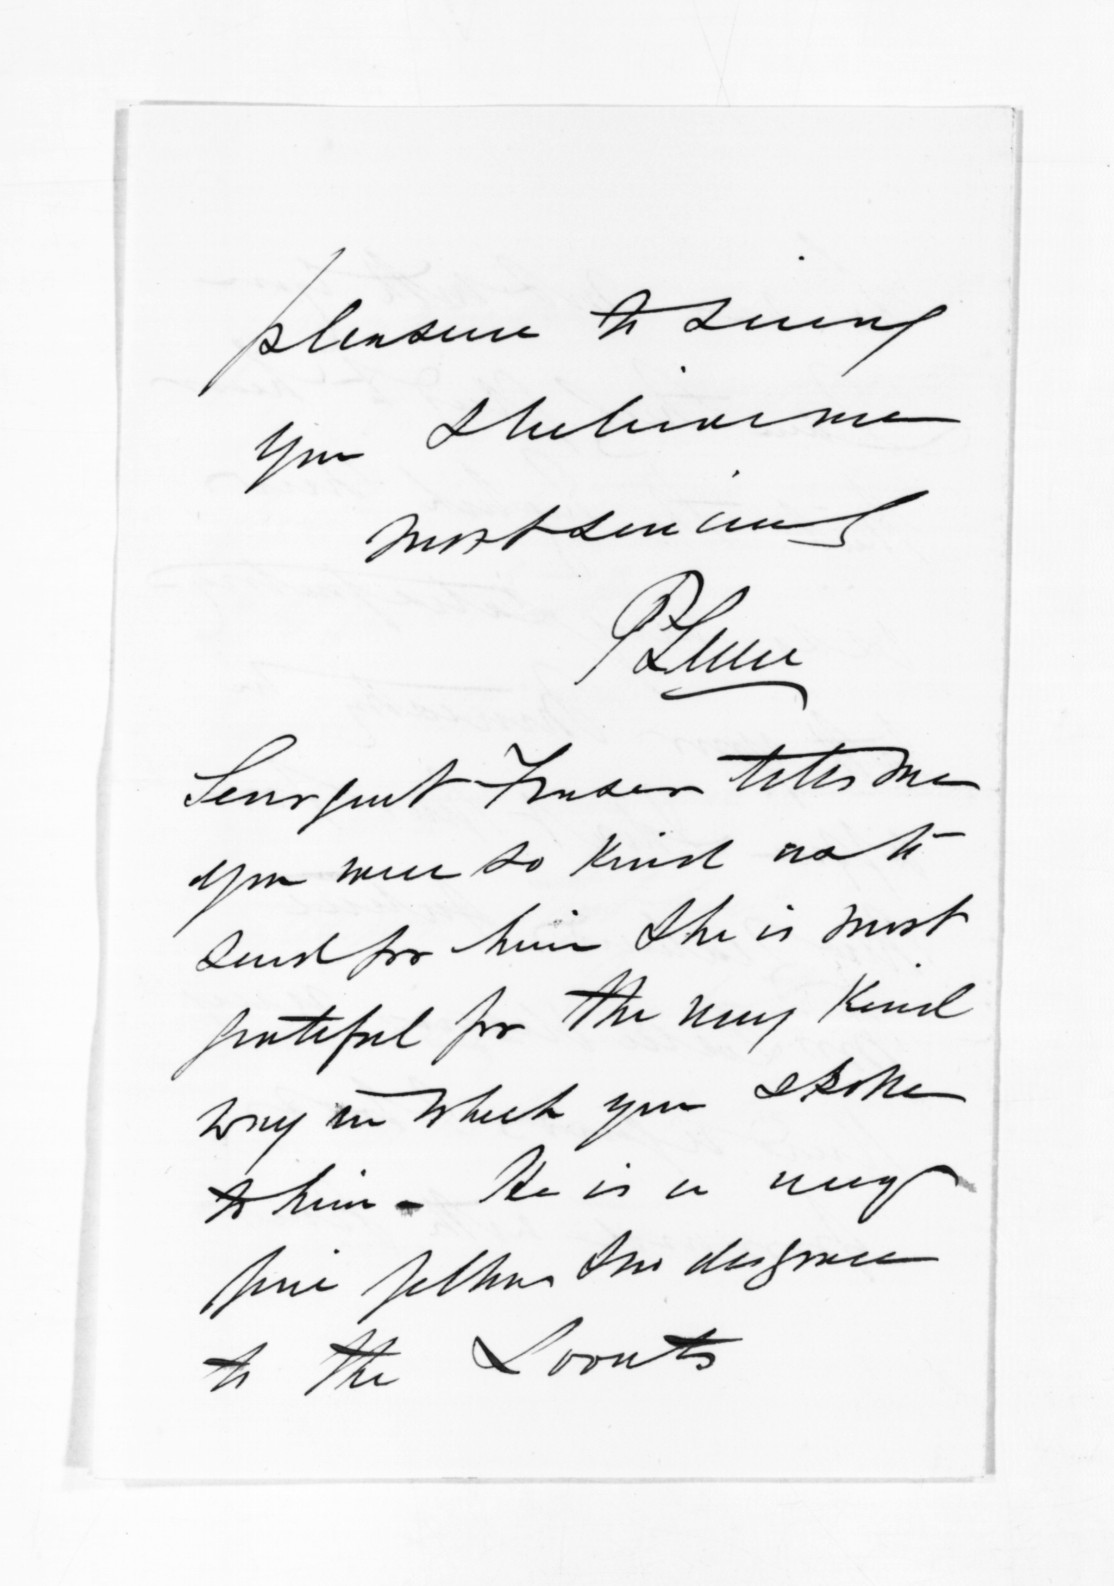 pleasure to seeing
you & believe me
most sincerely
Sergeant Fraser tells me
you were so kind as to
send for him & he is most
grateful for the very kind
way in which you spoke
to him - He is a very
fine fellow & no disgrace
to the Lovats